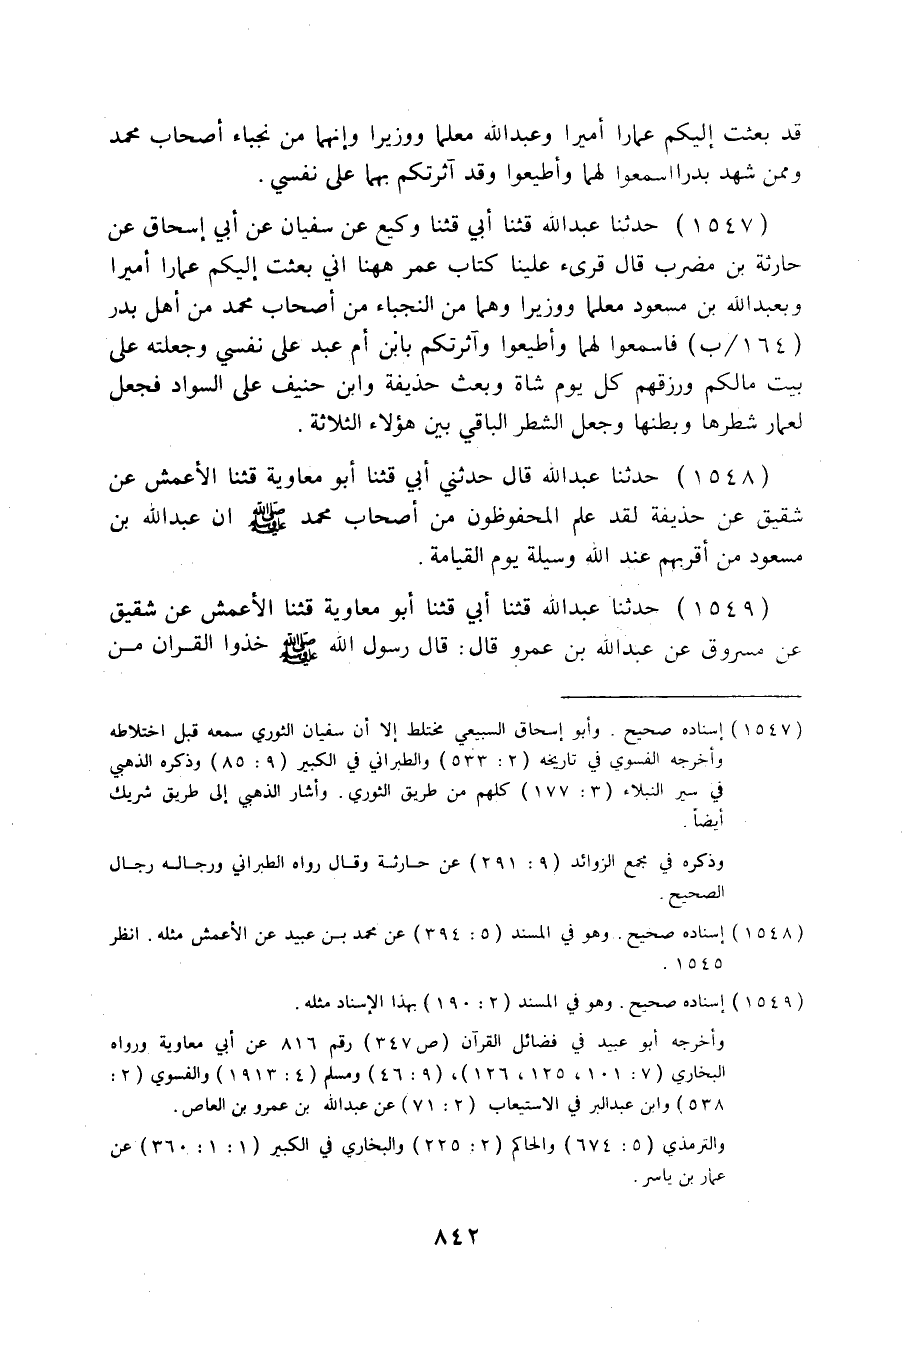 قد بعثت إليكم عمارا أميرا وعبدالله معلما ووزيرا وإنهما من نجباء أصحاب محمد
وممن شهد بدرا اسمعوا لهما وأطيعوا وقد آثرتكم بهما على نفسي .
(١٥٤٧) حدثنا عبدالله قثنا أبي قثنا وكيع عن سفيان عن أبي إسحاق عن
حارثة بن مضرب قال قرىء علينا كتاب عمر ههنا اني بعثت إليكم عمارا أميرا
وبعبدالله بن مسعود معلما ووزيرا وهما من النجباء من أصحاب محمد من أهل بدر
(١٦٤/ب) فاسمعوا لهما وأطيعوا وآثرتكم بابن أم عبد على نفسي وجعلته على
بيت مالكم ورزقهم كل يوم شاة وبعث حذيفة وابن حنيف على السواد فجعل
لعمار شطرها وبطنها وجعل الشطر الباقي بين هؤلاء الثلاثة .
(١٥٤٨) حدثنا عبدالله قال حدثني أبي قثنا أبو معاوية قثنا الأعمش عن
شقيق عن حذيفة لقد علم المحفوظون من أصحاب محمد ﷺ ان عبدالله بن
مسعود من أقربهم عند الله وسيلة يوم القيامة .
(١٥٤٩) حدثنا عبدالله قثنا أبي قثنا أبو معاوية قثنا الأعمش عن شقيق
عن مسروق عن عبدالله بن عمرو قال: قال رسول الله ﷺ خذوا القران من
(١٥٤٧) إسناده صحيح . وأبو إسحاق السبيعي مختلط إلا أن سفيان الثوري سمعه قبل اختلاطه
وأخرجه الفسوي في تاريخه (٢: ٥٣٣) والطبراني في الكبير (٩: ٨٥) وذكره الذهبي
في سير النبلاء (٣: ١٧٧) كلهم من طريق الثوري. وأشار الذهبي إلى طريق شريك
أيضاً.
وذكره في مجمع الزوائد (٩: ٢٩١) عن حارثة وقال رواه الطبراني ورجاله رجال
الصحيح.
(١٥٤٨) إسناده صحيح. وهو في المسند (٥: ٣٩٤) عن محمد بن عبيد عن الأعمش مثله. انظر
١٥٤٥ .
(١٥٤٩) إسناده صحيح. وهو في المسند (٢: ١٩٠) بهذا الإسناد مثله.
وأخرجه أبو عبيد في فضائل القرآن (ص٣٤٧) رقم ٨١٦ عن أبي معاوية ورواه
البخاري (٧: ١٠١، ١٢٥، ١٢٦)، (٩: ٤٦) ومسلم (٤: ١٩١٣) والفسوي (٢:
٥٣٨) وابن عبدالبر في الاستيعاب (٢: ٧١) عن عبدالله بن عمرو بن العاص.
والترمذي (٥: ٦٧٤) والحاكم (٢: ٢٢٥) والبخاري في الكبير (١: ١: ٣٦٠) عن
عمار بن ياسر.
٨٤٢